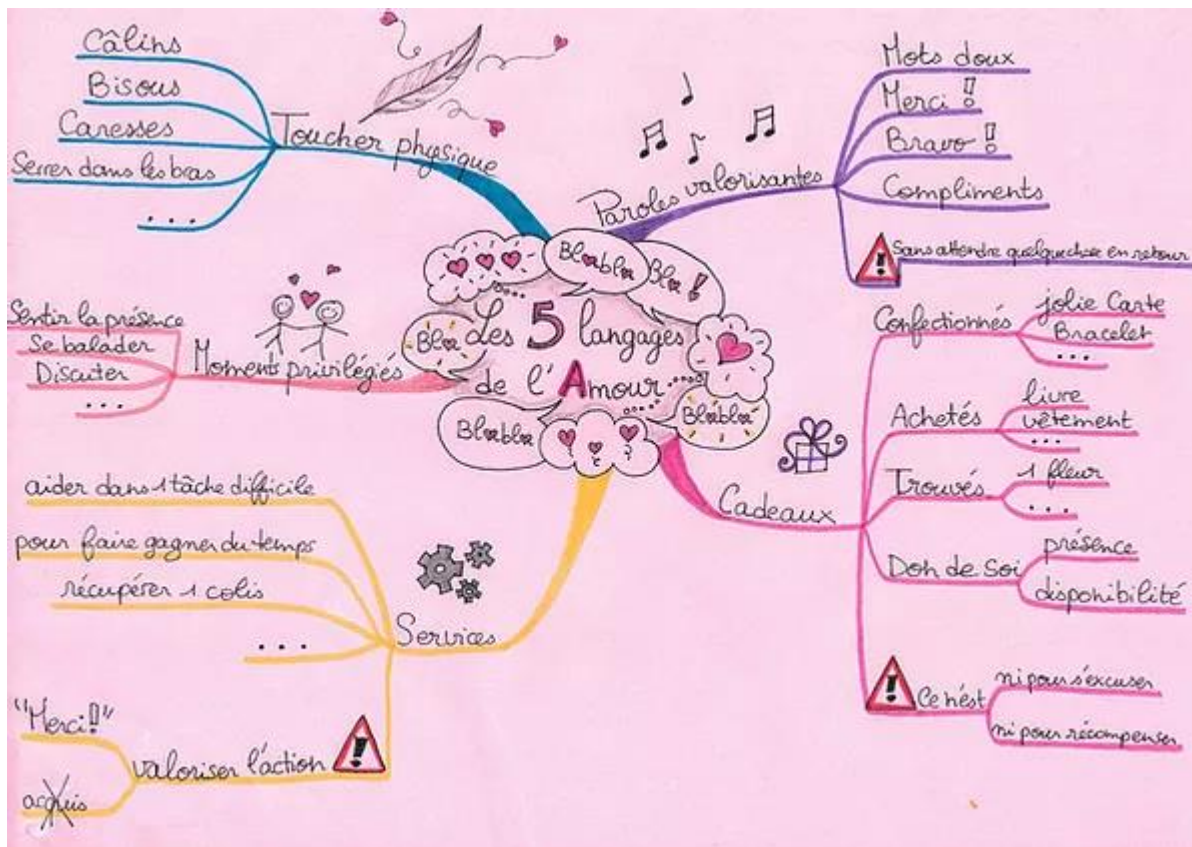 Les 5 langages
de l'Amour
Blabla
Bla !
Bla
Blabla
Blabla
Toucher physique
Câlins
Bisous
Caresses
Serrer dans les bras
...
Paroles valorisantes
Mots doux
Merci !
Bravo !
Compliments
! Sans attendre quelque chose en retour
Moments privilégiés
Sentir la présence
Se balader
Discuter
...
Cadeaux
Confectionnés
jolie Carte
Bracelet
...
Achetés
livre
vêtement
...
Trouvés
1 fleur
...
Don de Soi
présence
disponibilité
! Ce n'est
ni pour s'excuser
ni pour récompenser
Services
aider dans 1 tâche difficile
pour faire gagner du temps
récupérer 1 colis
...
valoriser l'action !
"Merci !"
acquis